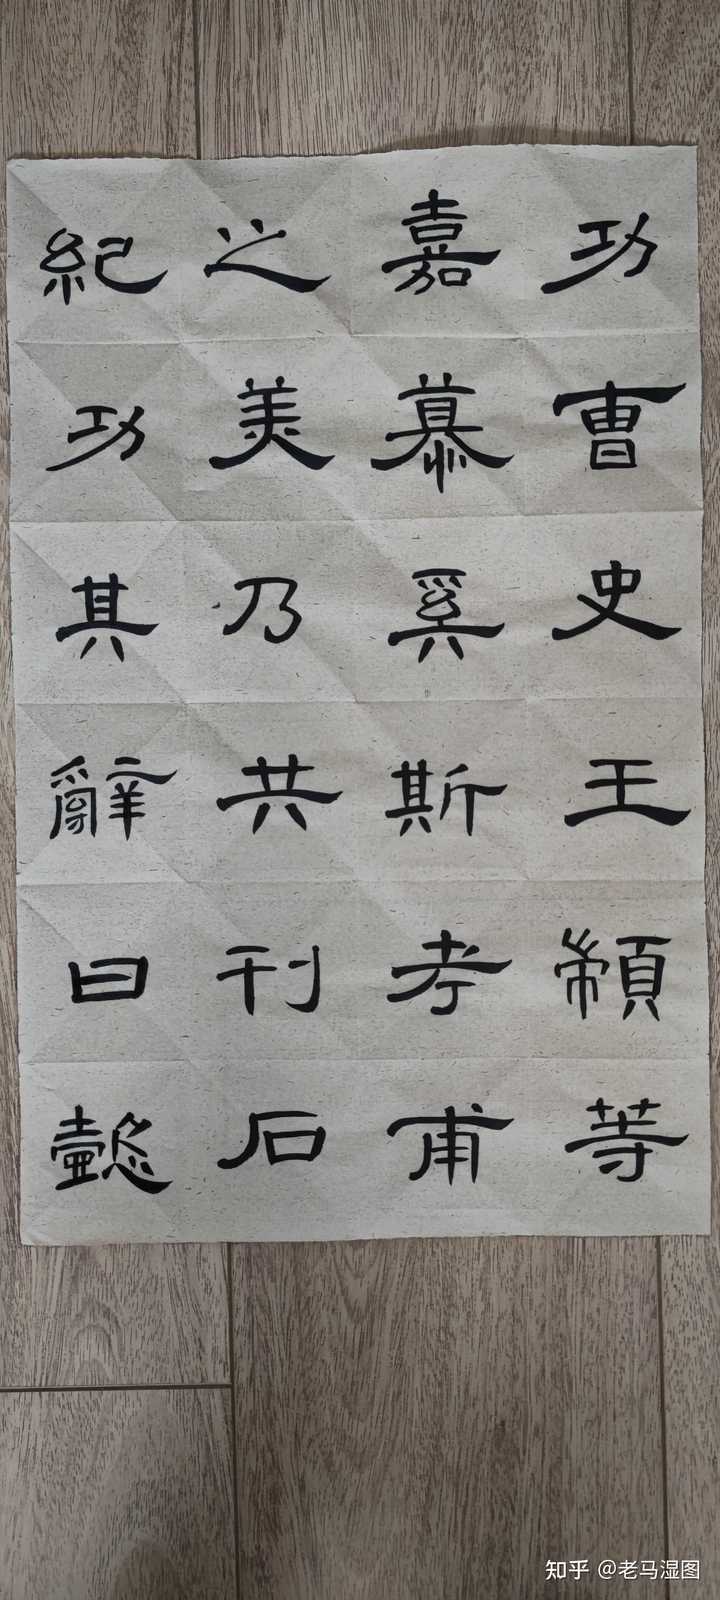 功曹史王顓等
嘉慕奚斯考甫
之美乃共刊石
紀功其辭曰懿
知乎 @老马湿图